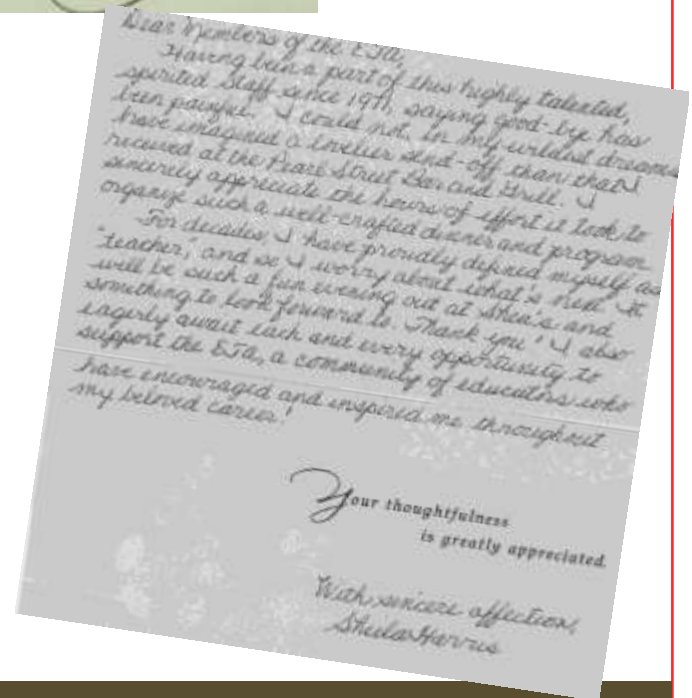 Dear Members of the ETa,
Having been a part of this highly talented,
spirited staff since 1971, saying good-bye has
been painful. I could not, in my wildest dreams
have imagined a lovelier send-off than that I
received at the Pearl Street Bar and Grill. I
sincerely appreciate the hours of effort it took to
organize such a well-crafted dinner and program.
For decades, I have proudly defined myself as
"teacher," and so I worry about what's next. It
will be such a fun evening out at Shea's and
something to look forward to. Thank you! I also
eagerly await each and every opportunity to
support the ETa, a community of educators who
have encouraged and inspired me throughout
my beloved career!
Your thoughtfulness
is greatly appreciated.
With sincere affection,
Sheila Harris